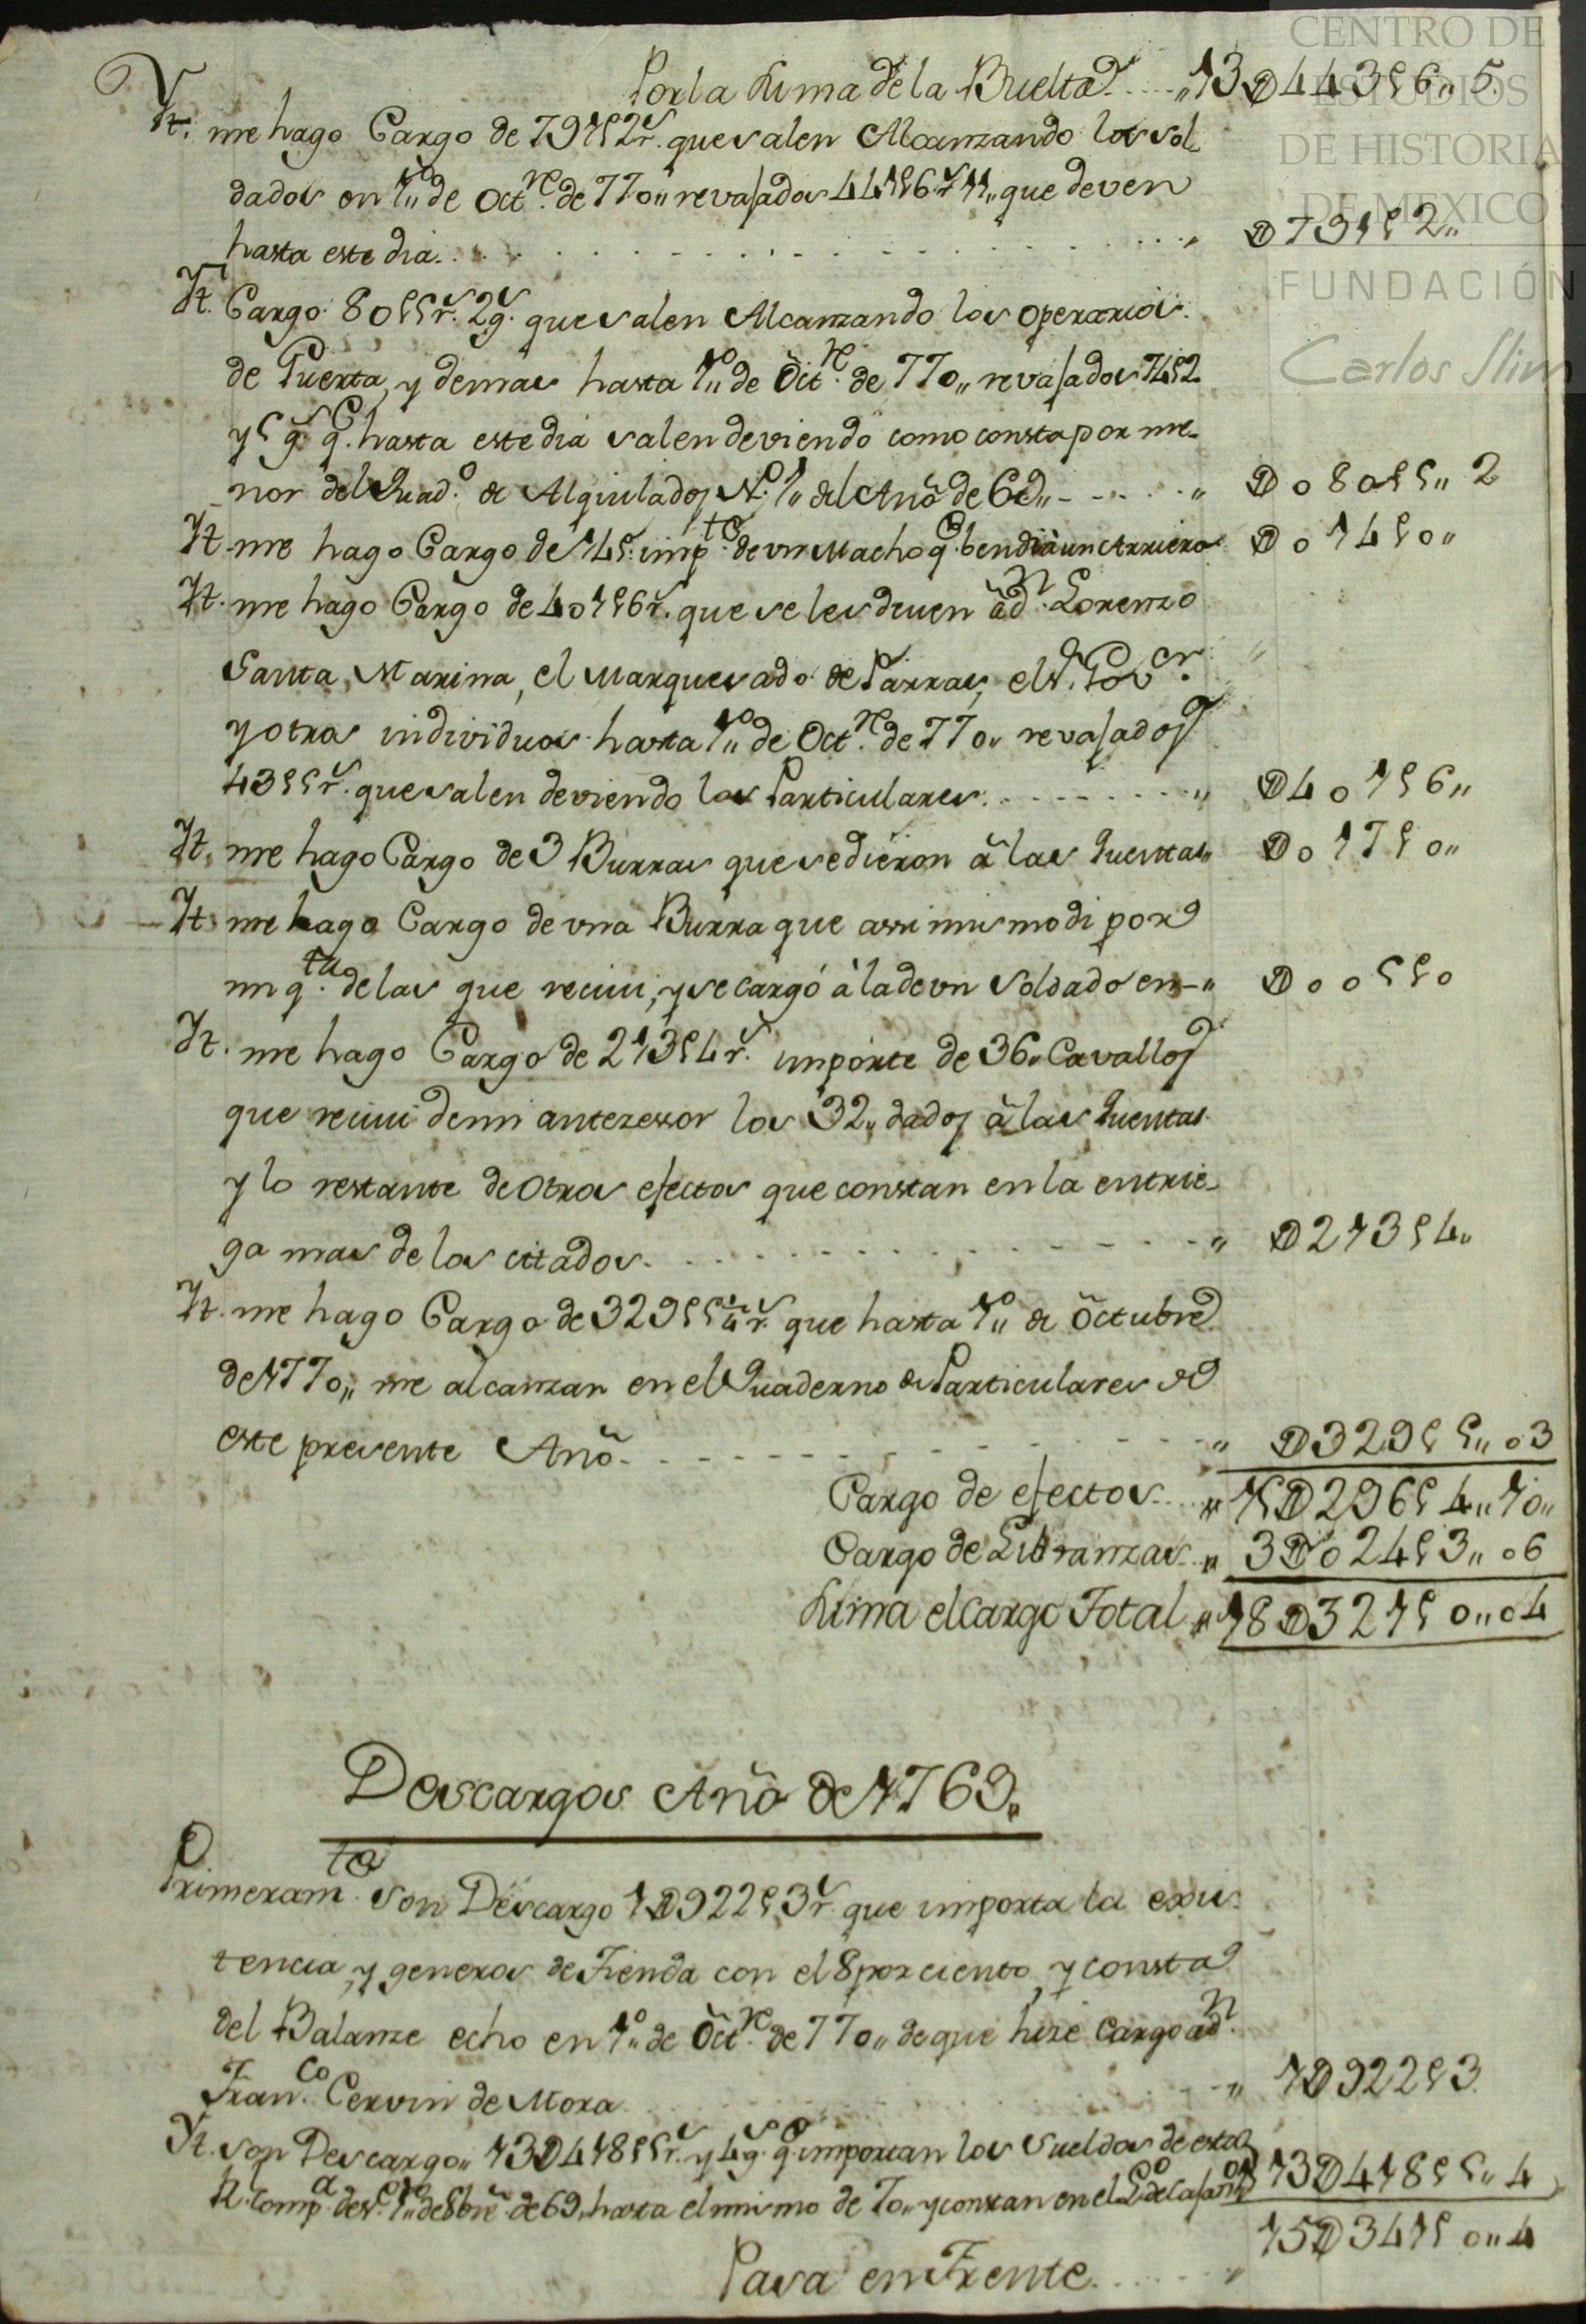 CENTRO DE
ESTUDIOS
DE HISTORIA
DE MEXICO
FUNDACIÓN
Carlos Slim
Por la Suma de la Buelta . . . . „ 13 D 443 $ 6 „ 5.
Yt. me hago Cargo de 791 $ 2 r.s que salen Alcanzando los Sol-
dados en 1.o„ de Oct.re de 770„ revajados 441 $ 6 r 11„ que deven
hasta este dia. . . . . . „ D 791 $ 2„
Yt. Cargo 805 $ 5 r.s 2 g.s que salen Alcanzando los operarios
de Puerta, y demas hasta 1.o„ de Oct.re de 770„ revajados 74 $ 2
y 5 g.s q.e hasta este dia salen deviendo como consta por me-
nor del Quad.o de Alquilados N.o 1„ del Año de 69„ - - - - „ D 0805 $ 5„ 2
Yt. me hago Cargo de 14 $ imp.te de vn Macho q.e bendi à un Arriero D 014 $ 0„
Yt. me hago Cargo de 401 $ 6 r.s que se les deven à d.n Lorenzo
Santa Marina, el Marquesado de Parras, el S.r Gov.or
y otros individuos hasta 1.o„ de Oct.re de 770„ revajados
43 $ 5 r.s que salen deviendo los Particulares . . . . . „ D 401 $ 6„
Yt. me hago Cargo de 3 Burras que se dieron à las Quentas„ D 017 $ 0„
Yt. me hago Cargo de vna Burra que assi mismo di por
mi q.ta de las que reciui, y se cargó à la de vn Soldado en - „ D 005 $ 0
Yt. me hago Cargo de 213 $ 4 r.s importe de 36„ Cavallos
que reciui de mi antezessor los 32„ dados à las Quentas
y lo restante de Otros efectos que constan en la entrie-
ga mas de los citados. . . . . . „ D 213 $ 4„
Yt. me hago Cargo de 329 $ 5 ¼ r.s que hasta 1.o„ de Octubre
de 1770„ me alcanzan en el Quaderno de Particulares de
este presente Año. - - - - - „ D 329 $ 5„ 03
Cargo de efectos. . . „ 15 D 296 $ 4„ 10„
Cargo de Libranzas. . „ 3 D 024 $ 3„ 06
Suma el Cargo Total „ 18 D 321 $ 0„ 04
Descargos Año de 1769„
Primeram.te Son Descargo 1 D 922 $ 3 r.s que importa la exis-
tencia, y generos de Tienda con el 8 por ciento, y consta
del Balanze echo en 1.o„ de Oct.re de 770„ de que hize Cargo a d.n
Fran.co Cervin de Mora . . . . „ 1 D 922 $ 3
Yt. son Descargo„ 13 D 418 $ 5 r.s y 4 g.s q.e importan los Sueldos de esta
R.l Comp.a de 1.o„ de 8bre de 69„ hasta el mismo de 70„ y constan en el 13 D 418 $ 5„ 4
15 D 341 $ 0„ 4
Pasa en Frente. . . . . „